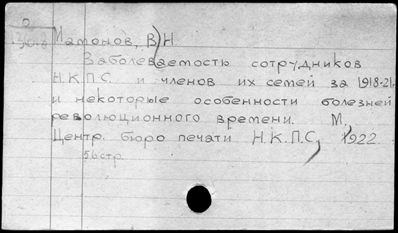 Мамонов, В. Н.
Заболеваемость сотрудников
Н.К.П.С. и членов их семей за 1918-21г.
и некоторые особенности болезней
революционного времени. М.,
Центр. бюро печати Н.К.П.С., 1922.
56 стр.